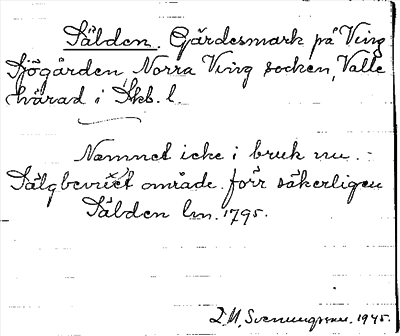 Sälden. Gärdesmark på Ving
Sjögården, Norra Ving socken, Valle
härad i Skb. l.
Namnet icke i bruk nu.
Sälgbevuxet område förr säkerligen
Sälden lm. 1795.
1945.